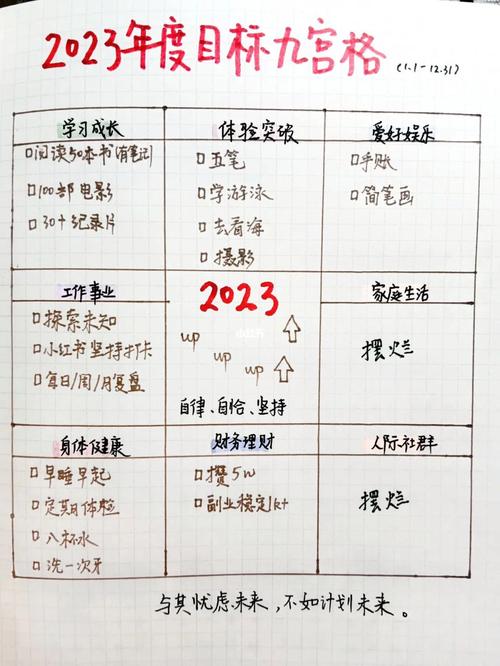 2023年度目标九宫格 (1.1-12.31)
学习成长
□阅读50本书(有笔记)
□100部电影
□30+纪录片
体验突破
□五笔
□学游泳
□去看海
□摄影
爱好娱乐
□手账
□简笔画
工作事业
□探索未知
□小红书坚持打卡
□每日/周/月复盘
2023
up
up
up
自律、自恰、坚持
家庭生活
摆烂
身体健康
□早睡早起
□定期体检
□八杯水
□洗一次牙
财务理财
□攒5w
□副业稳定1k+
人际社群
摆烂
与其忧虑未来，不如计划未来。